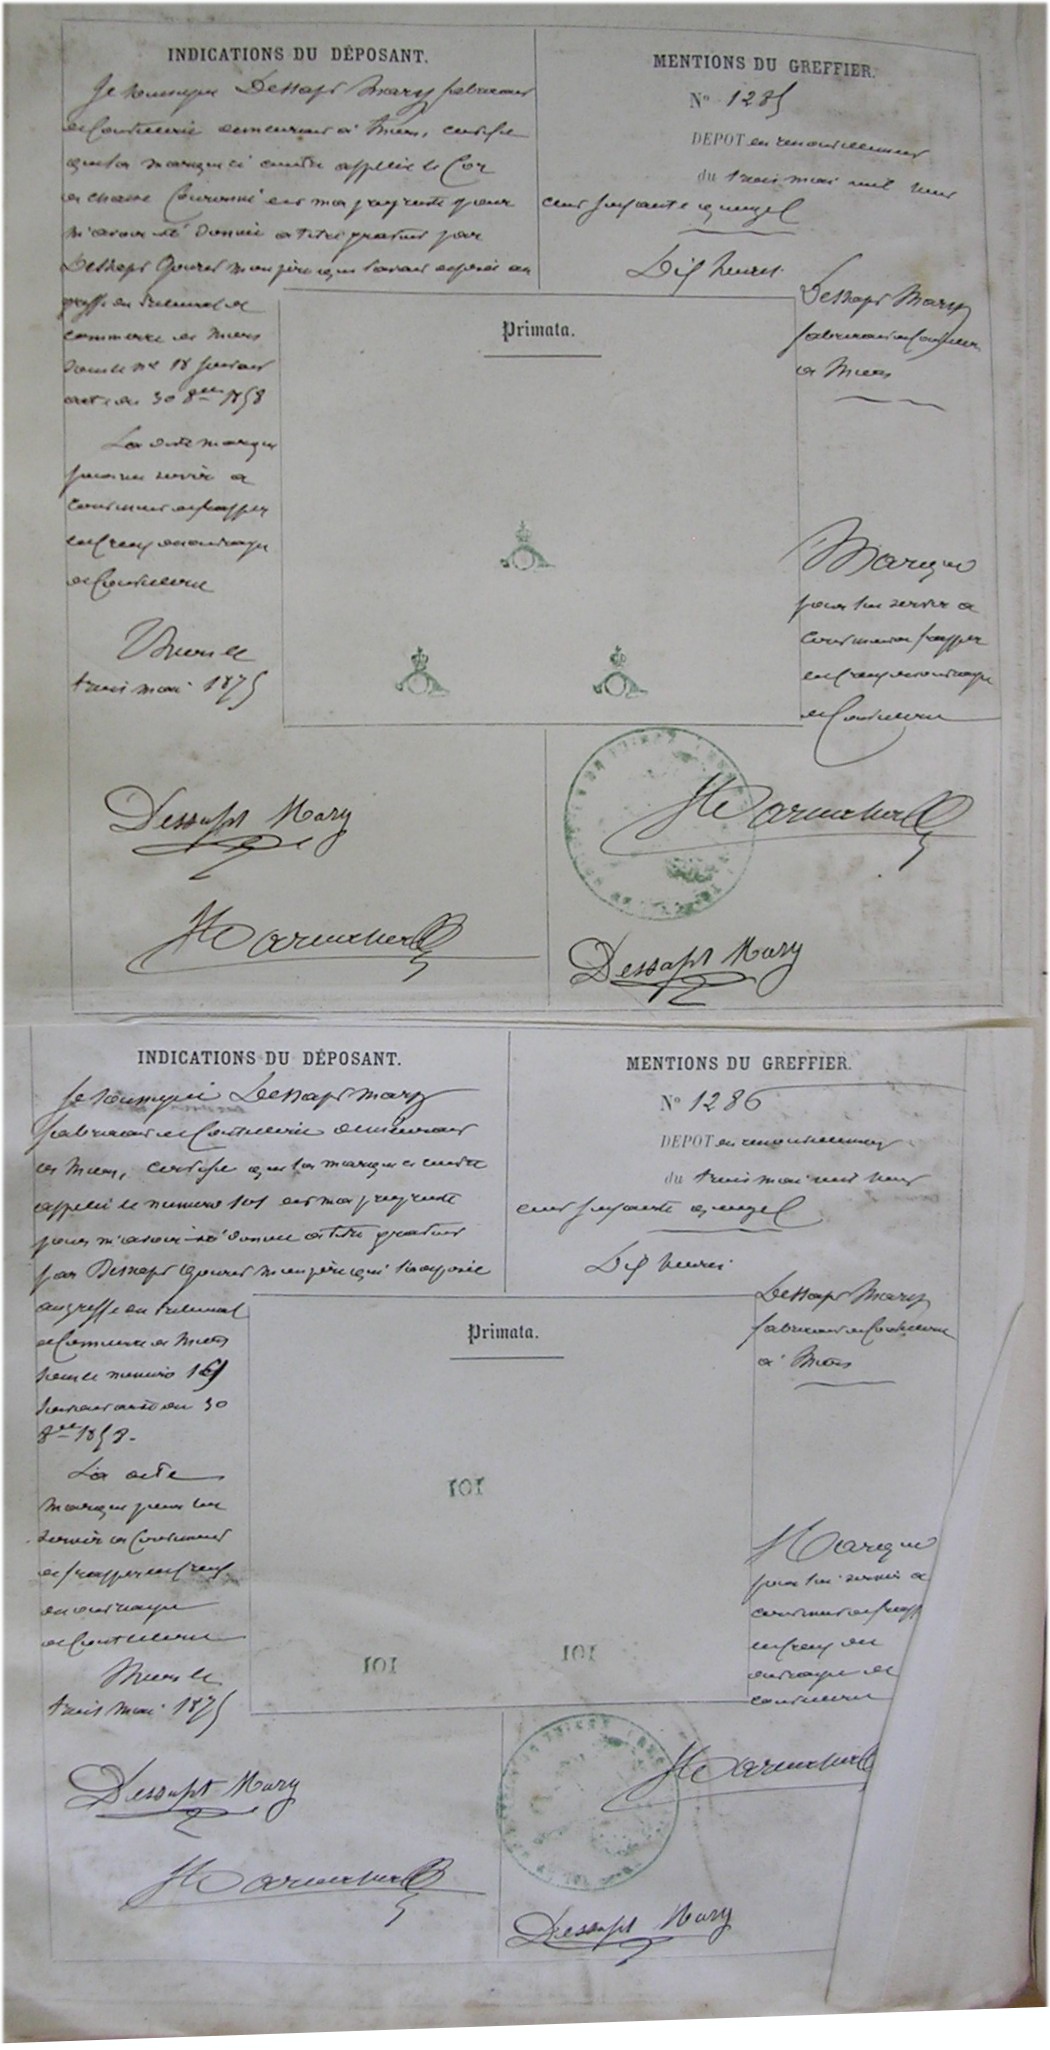 INDICATIONS DU DÉPOSANT.
Je soussigné Dessapt Mary fabricant
de Coutellerie demeurant à Thiers, certifie
que la marque ci contre appellée le Cor
de chasse Couronné est ma propriété pour
m'avoir été donnée à titre gratuit par
Dessapt Gouret mon père qui l'avait déposée au
greffe du tribunal de
commerce de Thiers
sous le n° 18 suivant
acte du 30 8bre 1858
La dite marque
pour me servir à
continuer de frapper
en creux des ouvrages
de Coutellerie
Thiers le
trois mai 1875
Dessapt Mary
MENTIONS DU GREFFIER.
N° 1285
DEPOT en renouvellement
du trois mai mil huit
cent soixante quinze
Dix heures.
Dessapt Mary
fabricant de Coutellerie
à Thiers
Primata.
Marque
pour lui servir à
continuer de frapper
en creux des ouvrages
de Coutellerie
Dessapt Mary
INDICATIONS DU DÉPOSANT.
Je soussigné Dessapt Mary
fabricant de Coutellerie demeurant
à Thiers, certifie que la marque ci contre
appellée le numéro 101 est ma propriété
pour m'avoir été donnée à titre gratuit
par Dessapt Gouret mon père qui l'a déposée
au greffe du tribunal
de Commerce de Thiers
sous le numéro
suivant acte du 30
8bre 1858.
La dite
marque pour me
servir à Continuer
de frapper en creux
des ouvrages
de Coutellerie
Thiers le
trois mai 1875
Dessapt Mary
MENTIONS DU GREFFIER.
N° 1286
DEPOT en renouvellement
du trois mai mil huit
cent soixante quinze
Dix heures.
Dessapt Mary
fabricant de Coutellerie
à Thiers
Primata.
101
101
101
Marque
pour lui servir à
continuer de frapp
en creux des
ouvrages de
coutellerie
Dessapt Mary